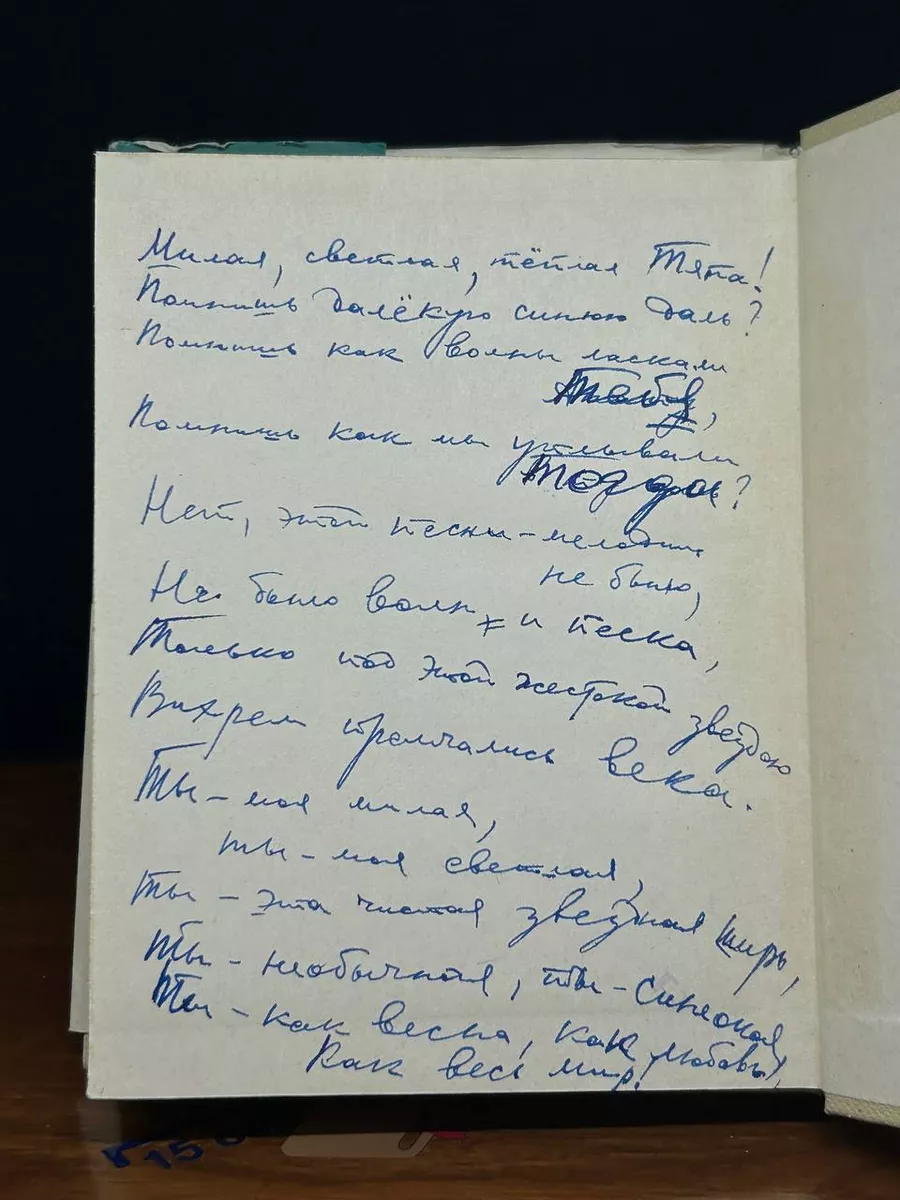 Милая, светлая, тёплая Тяпа!
Помнишь далёкую синюю даль?
Помнишь как волны ласкали
тебя,
Помнишь как мы уплывали
тогда?
Нет, этой песни-мелодии
не было,
Не было волн и песка,
Только под этой жестокой звездою
Вихрем промчались века.
Ты - моя милая,
ты - моя светлая,
Ты - эта чистая звёздная ширь,
Ты - необычная, ты - синеокая,
Ты - как весна, как любовь,
Как весь мир!